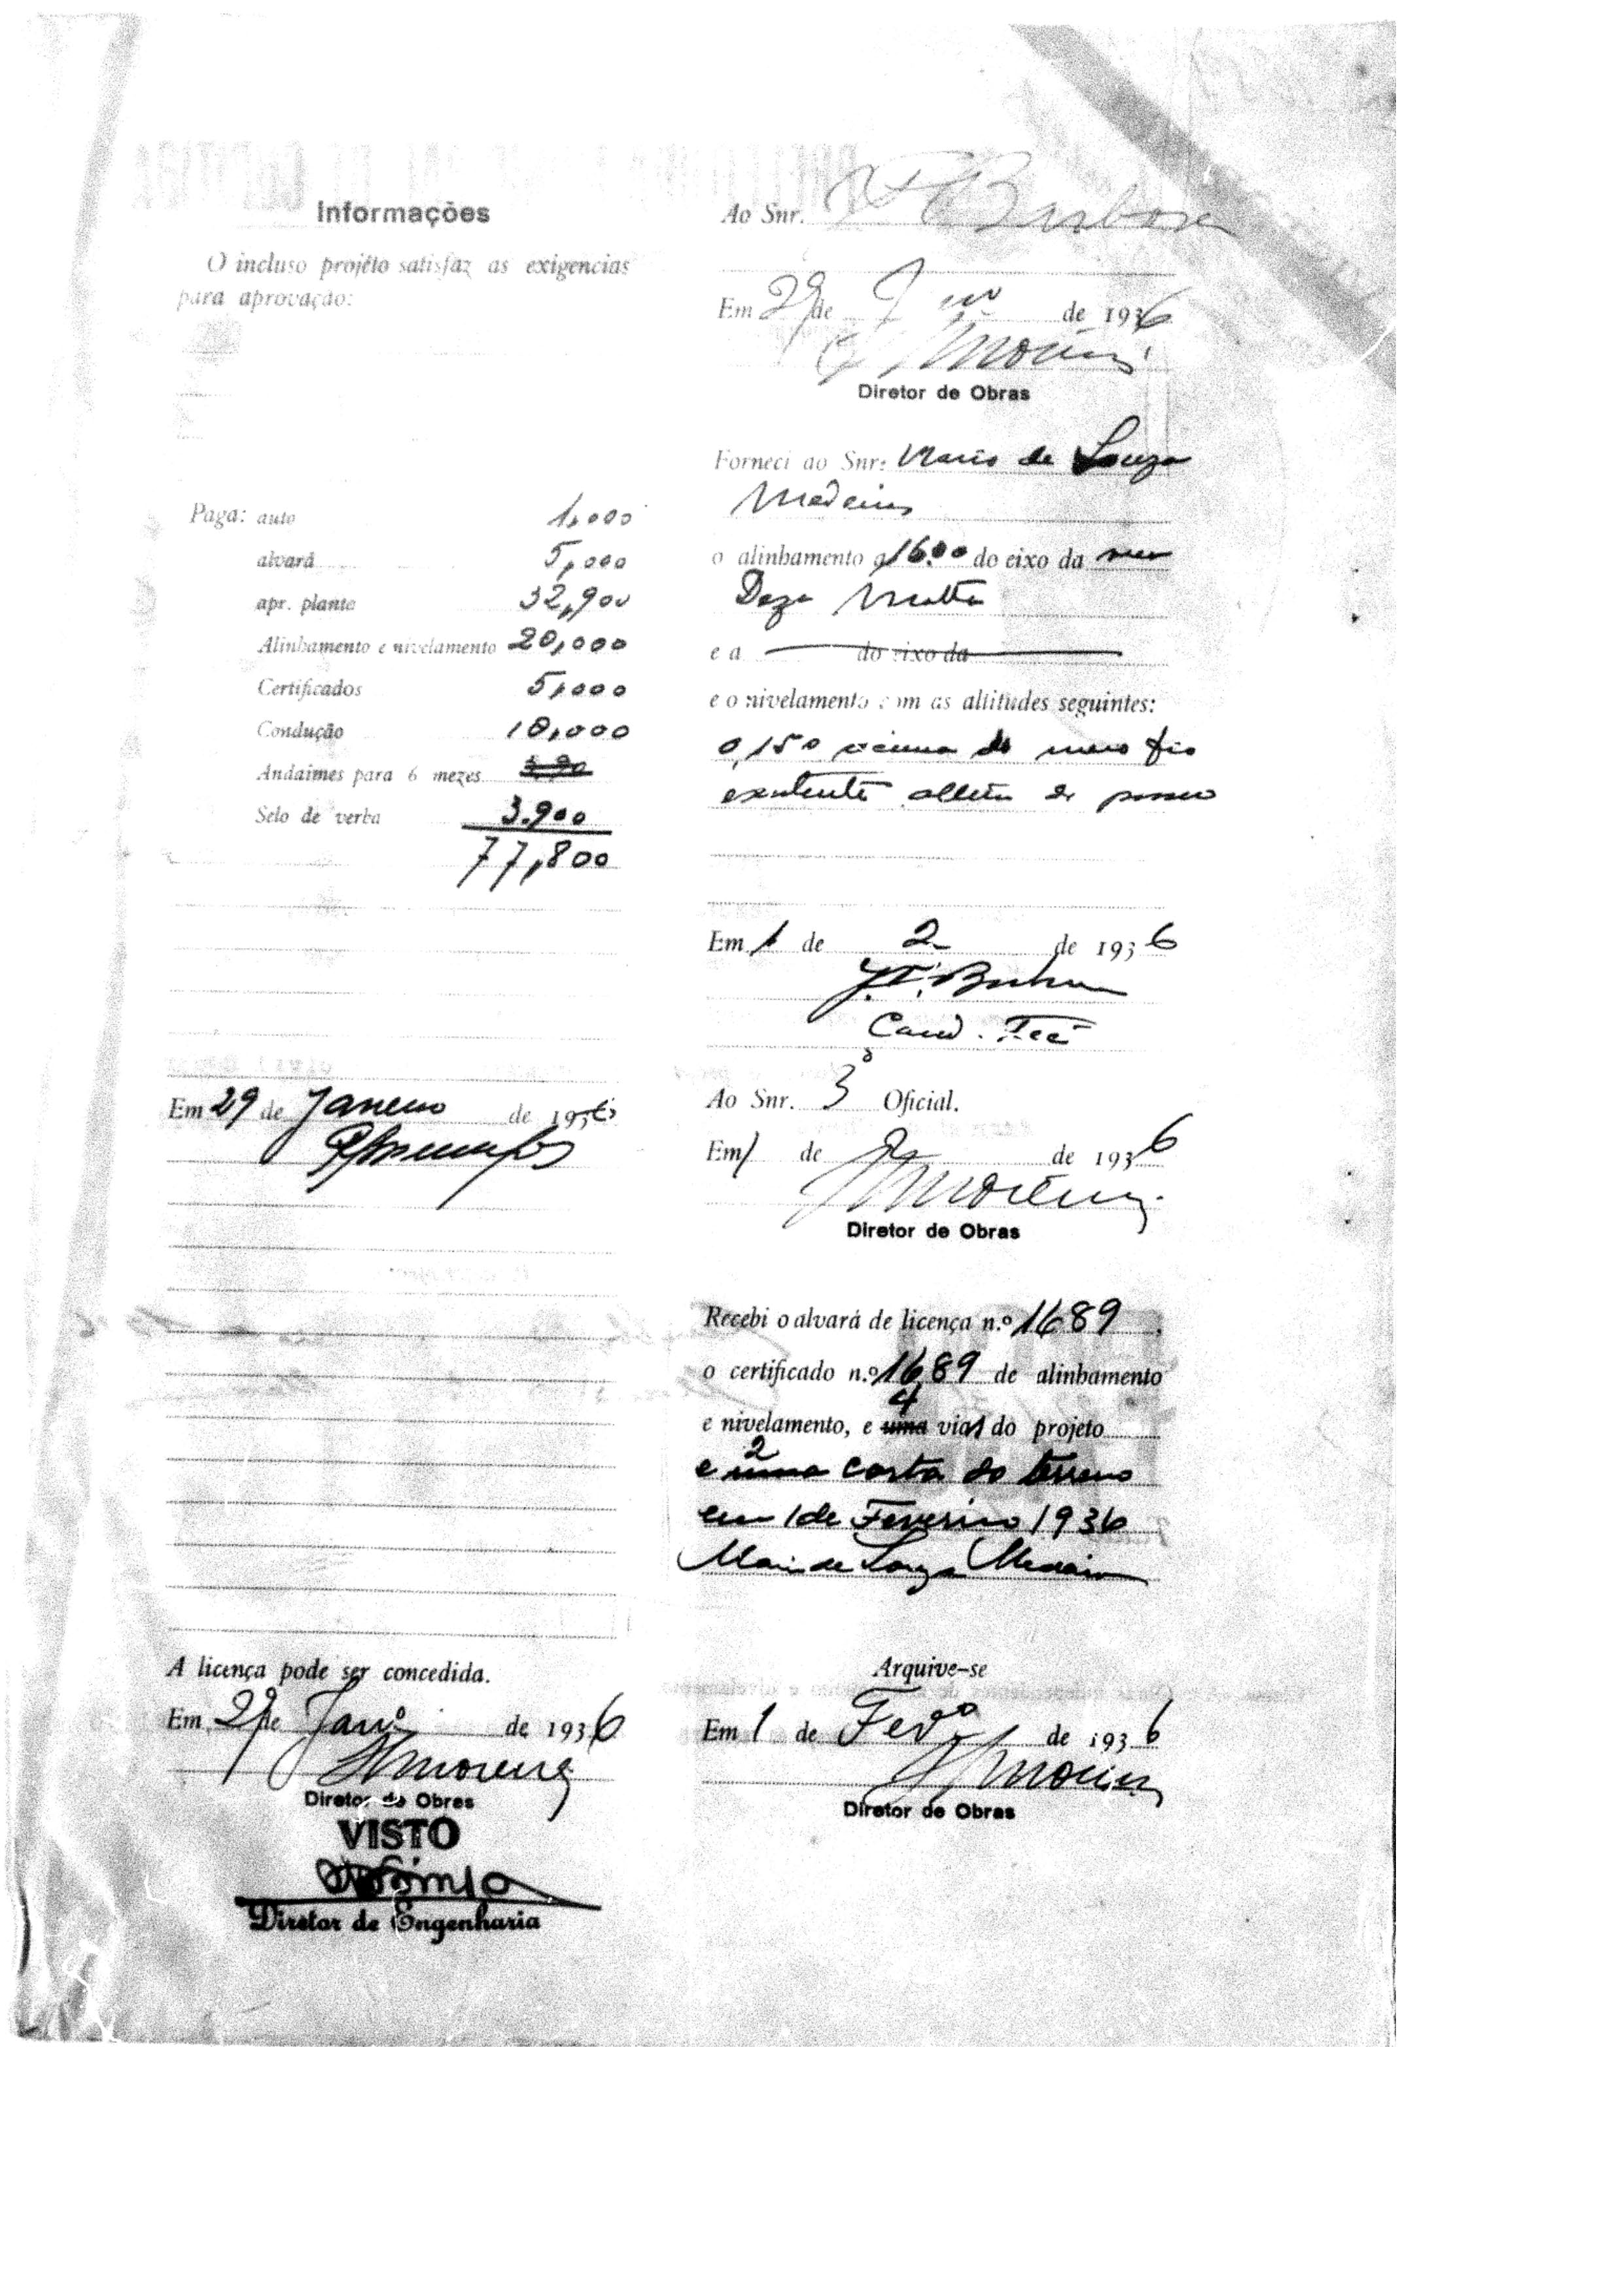 Informações
O incluso projéto satisfaz as exigencias
para aprovação:
Paga: auto 1,000
alvará 5,000
apr. planta 32,900
Alinhamento e nivelamento 20,000
Certificados 5,000
Condução 10,000
Andaimes para 6 mezes
Selo de verba 3.900
77,800
Em 29 de Janeiro de 1936
A licença pode ser concedida.
Em 29 de Janº de 1936
Diretor de Obras
VISTO
Diretor de Engenharia
Ao Snr. Barbosa
Em 29 de de 1936
Diretor de Obras
Forneci ao Snr: Mario de Souza
Medeiros
o alinhamento a 16.00 do eixo da rua
Motta
e a do eixo da
e o nivelamento com as altitudes seguintes:
0,150 acima do meio fio
existente
Em 1 de 2 de 1936
Ao Snr. 3º Oficial.
Em 1 de 2 de 1936
Diretor de Obras
Recebi o alvará de licença n.º 1689
o certificado n.º 1689 de alinhamento
4
e nivelamento, e uma vias do projeto
2
e uma carta do terreno
em 1 de Fevereiro 1936
Mario de Souza Medeiros
Arquive-se
Em 1 de Fevº de 1936
Diretor de Obras